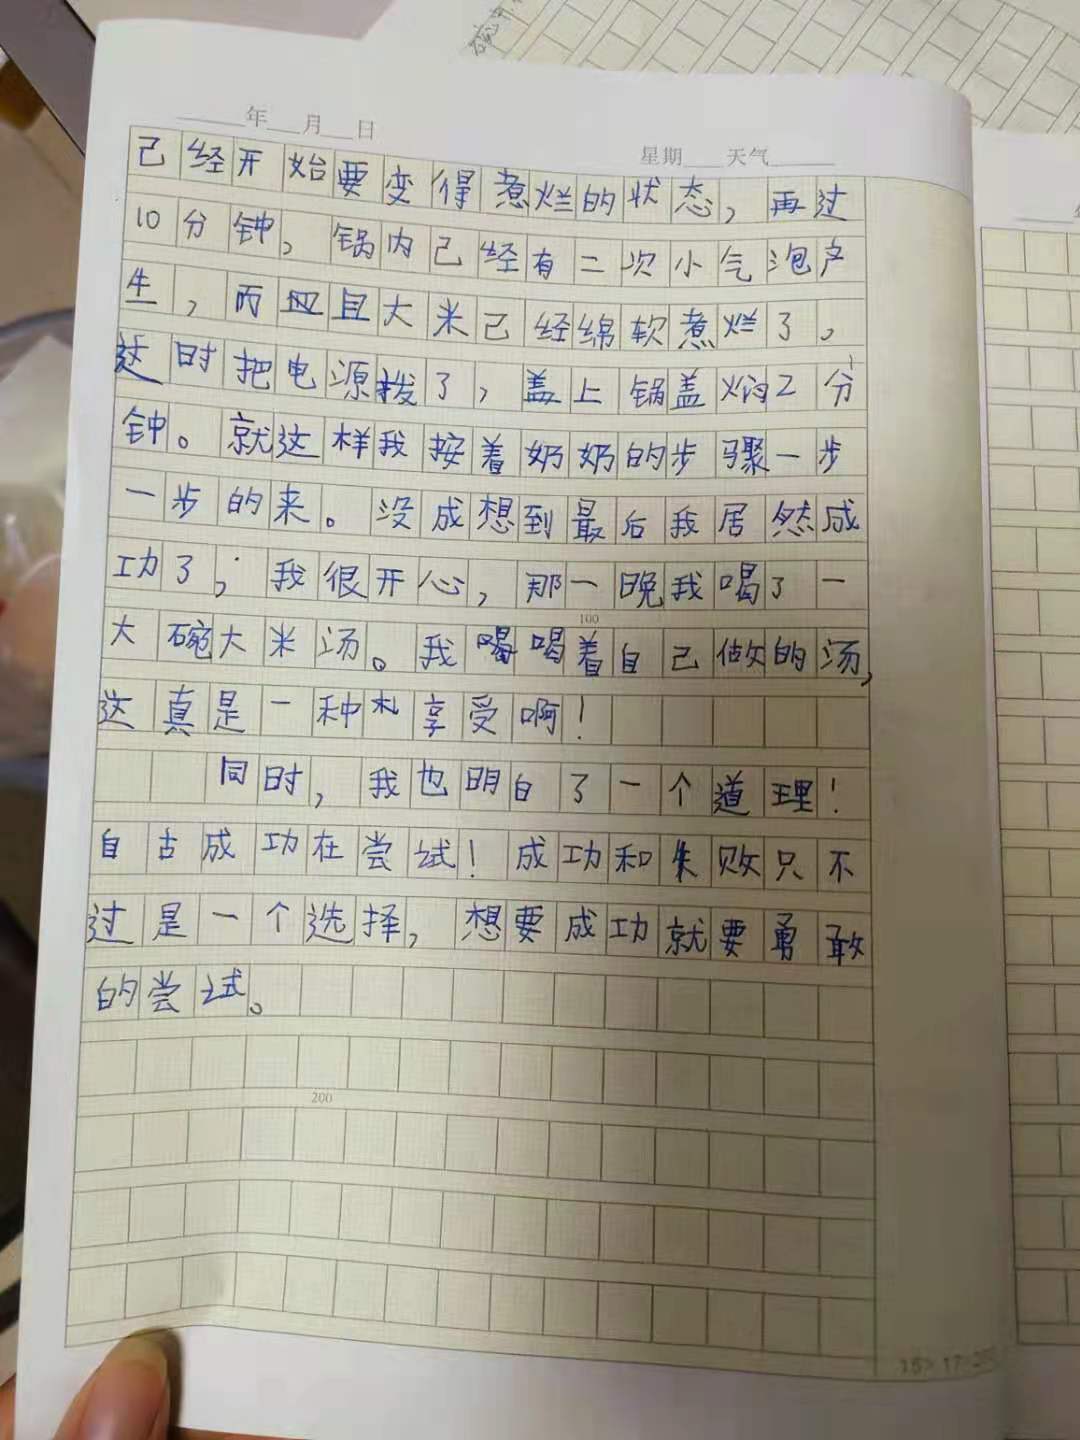 年 月 日
星期 天气
己经开始要变得煮烂的状态，再过
10分钟，锅内己经有二次小气泡产
生，而皿且大米己经绵软煮烂了，
这时把电源拨了，盖上锅盖焖2分
钟。就这样我按着奶奶的步骤一步
一步的来。没成想到最后我居然成
功了；我很开心，那一晚我喝了一
100
大碗大米汤。我喝喝着自己做的汤，
这真是一种札享受啊！
同时，我也明白了一个道理！
自古成功在尝试！成功和失败只不
过是一个选择，想要成功就要勇敢
的尝试。
200